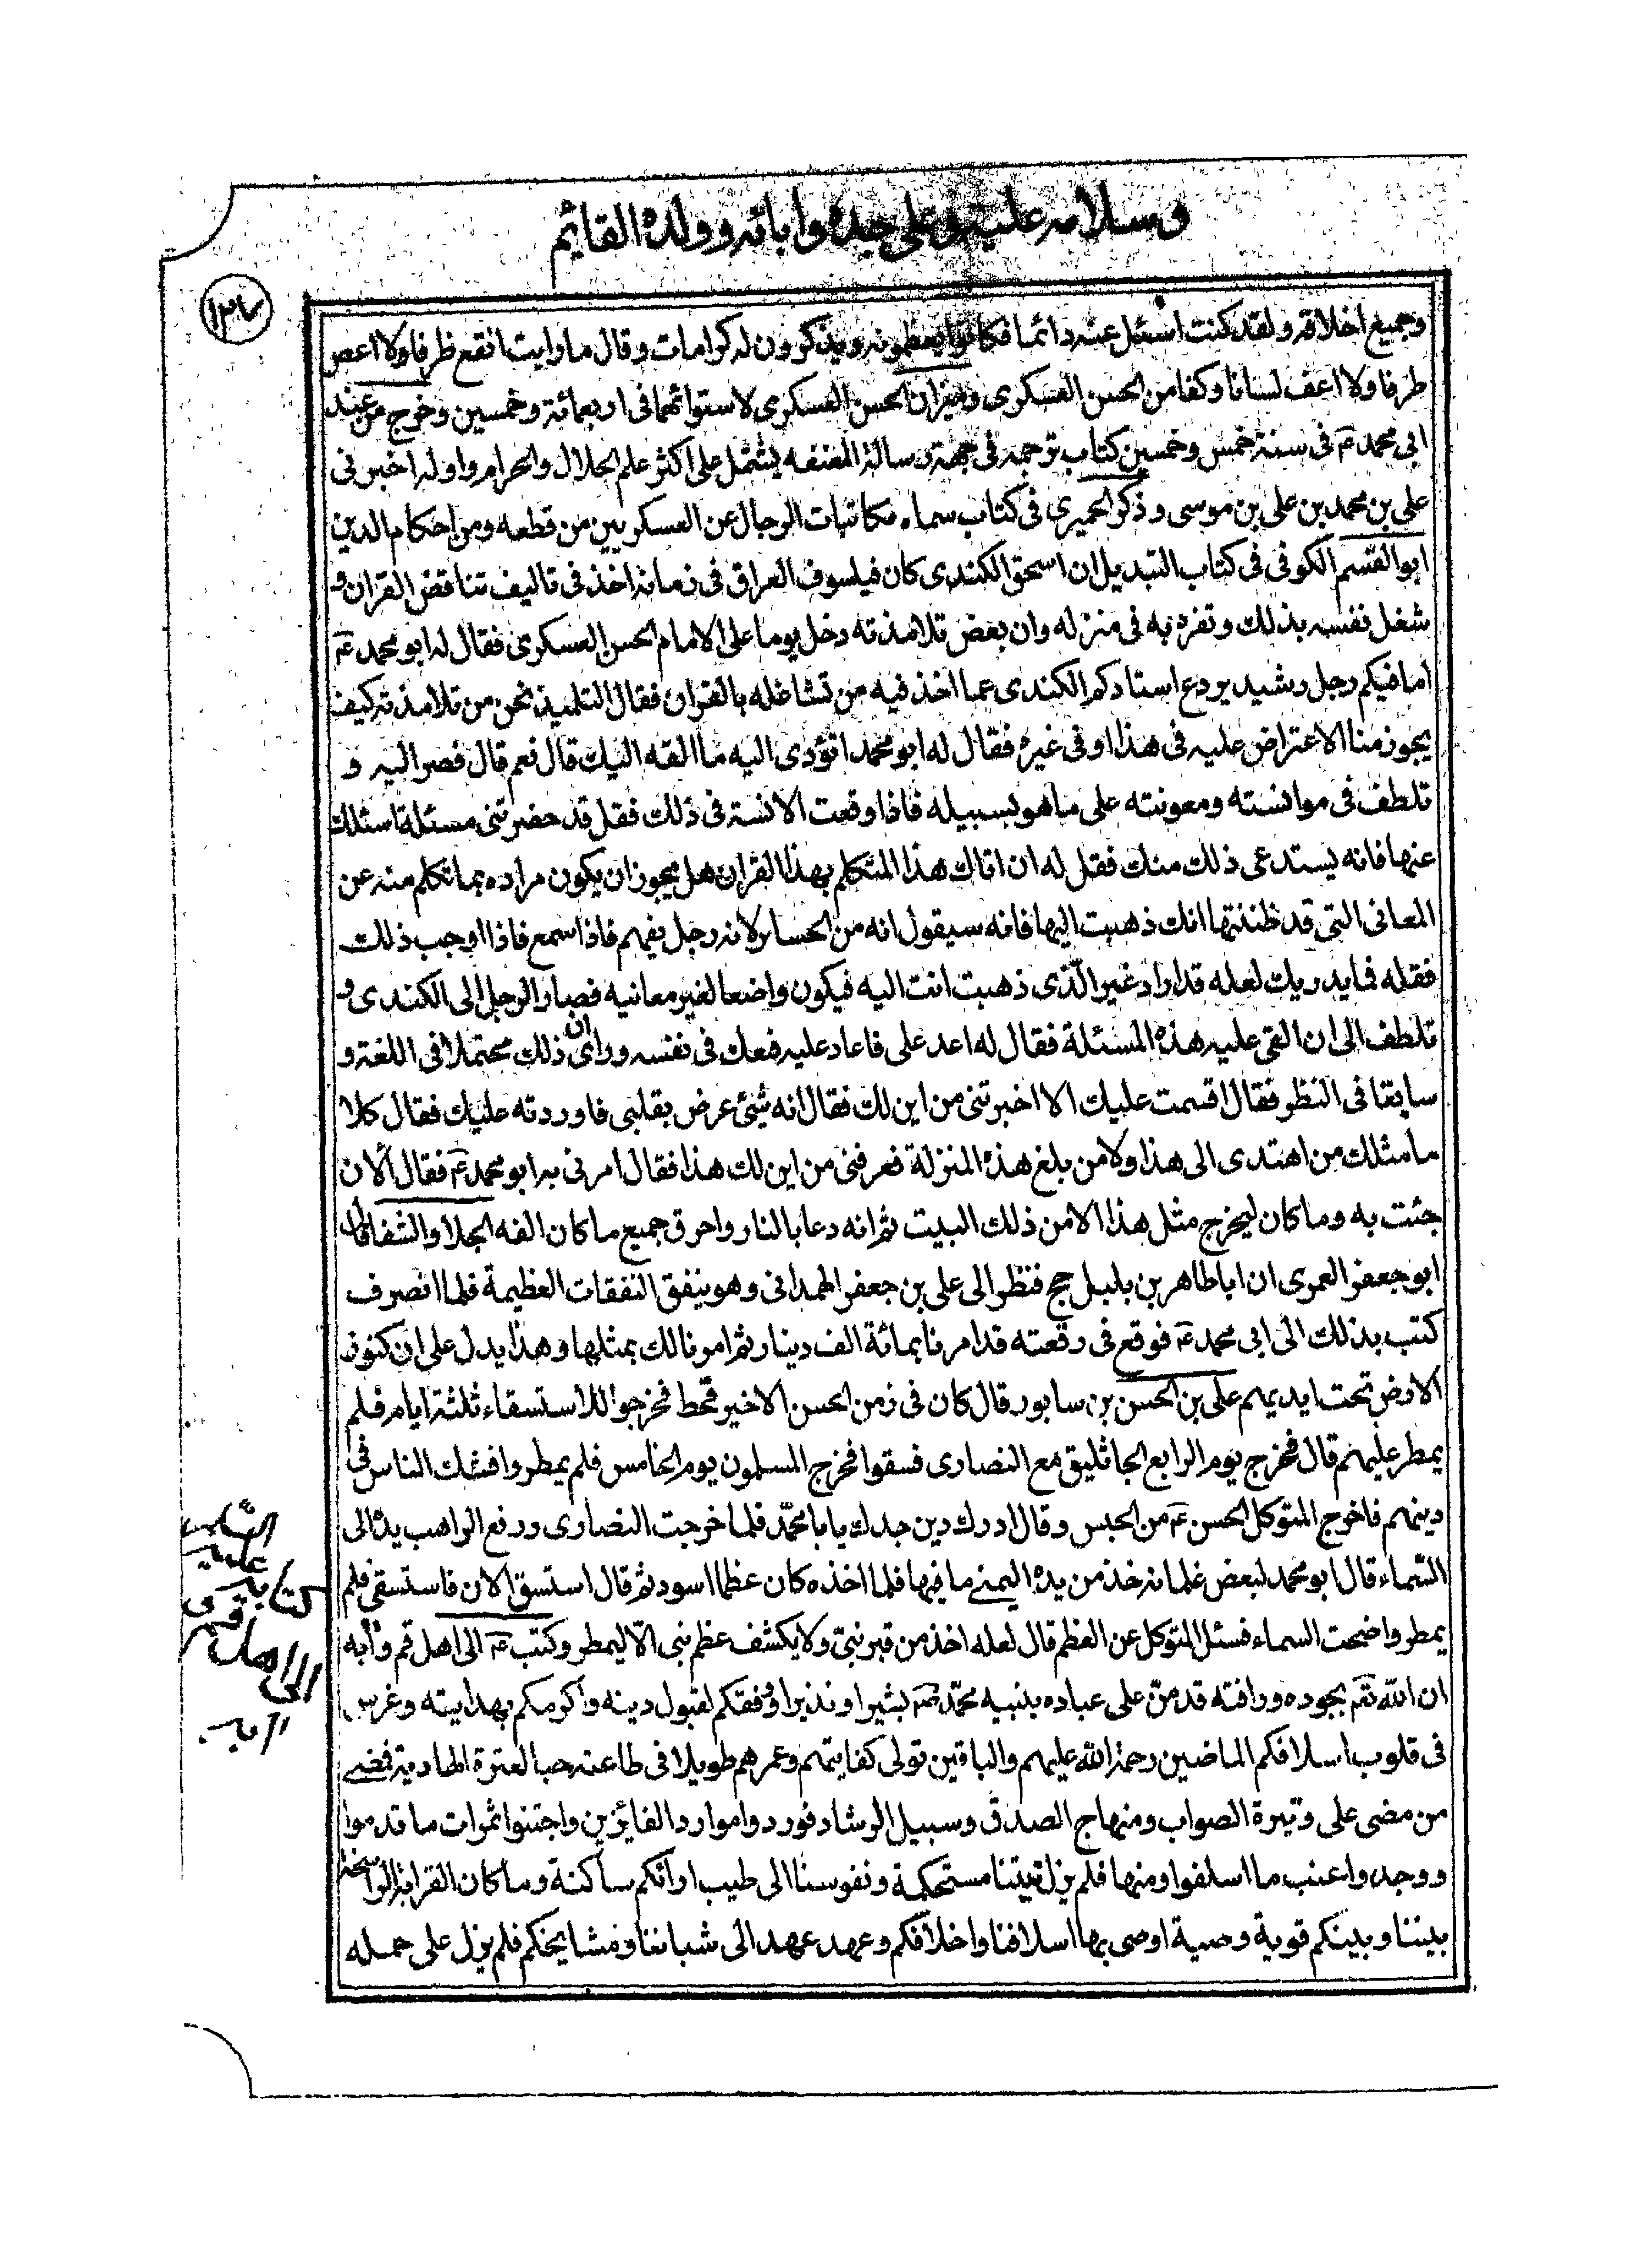 وسلامه عليه وعلى جده وابائه وولده القائم
١٣٧
وجميع اخلاقه ولقد كنت اسئل عنه دائما فكانوا يعظمونه ويذكرون له كرامات وقال ما رايت انقع ظرفا ولا اعص
طرفا ولا اعف لسانا وكفا من الحسن العسكرى وميزان الحسن العسكرى لاستوائهما فى اربعمائة وخمسين وخرج من عند
ابى محمد ع فى سنة خمس وخمسين كتاب ترجمه فى جهة رسالة المقنعه يشتمل على اكثر علم الحلال والحرام واوله اخبرنى
على بن محمد بن على بن موسى وذكر الحميرى فى كتاب سماه مكاتبات الرجال عن العسكريين من قطعه ومن احكام الدين
ابو القسم الكوفى فى كتاب التبديل ان اسحق الكندى كان فيلسوف العراق فى زمانه اخذ فى تاليف تناقض القران و
شغل نفسه بذلك وتفرد به فى منزله وان بعض تلامذته دخل يوما على الامام الحسن العسكرى فقال له ابو محمد ع
اما فيكم رجل رشيد يردع استادكم الكندى عما اخذ فيه من تشاغله بالقران فقال التلميذ نحن من تلامذته كيف
يجوز منا الاعتراض عليه فى هذا او فى غيره فقال له ابو محمد اتؤدى اليه ما القه اليك قال نعم قال فصر اليه و
تلطف فى موانسته ومعونته على ما هو بسبيله فاذا وقعت الانسة فى ذلك فقل قد حضرتنى مسئلة اسئلك
عنها فانه يستدعى ذلك منك فقل له ان اتاك هذا المتكلم بهذا القران هل يجوز ان يكون مراده بما تكلم منه عن
المعانى التى قد ظننتها انك ذهبت اليها فانه سيقول انه من الجسائز لانه رجل يفهم فاذا سمع فاذا اوجب ذلك
فقل له فما يدريك لعله قد اراد غير الذى ذهبت انت اليه فيكون واضعا لغير معانيه فصار الرجل الى الكندى و
تلطف الى ان القى عليه هذه المسئلة فقال له اعد على فاعاد عليه فعك فى نفسه وراى ان ذلك محتملا فى اللغة و
سابقا فى النظر فقال اقسمت عليك الا اخبرتنى من اين لك فقال انه شئ عرض بقلبى فاوردته عليك فقال كلا
ما مثلك من اهتدى الى هذا ولا من بلغ هذه المنزلة فعرفنى من اين لك هذا فقال امرنى به ابو محمد ع فقال الان
جئت به وما كان ليخرج مثل هذا الا من ذلك البيت ثم انه دعا بالنار واحرق جميع ما كان الفه الجلا والشفا قال
ابو جعفر العمرى ان ابا طاهر بن بلبل حج فنظر الى على بن جعفر الهمدانى وهو ينفق النفقات العظيمة فلما انصرف
كتب بذلك الى ابى محمد ع فوقع فى رقعته قد امرنا بمائة الف دينار ثم امرنا لك بمثلها وهذا يدل على ان كنوز
الارض تحت ايديهم على بن الحسن بن سابور قال كان فى زمن الحسن الاخير قحط فخرجوا للاستسقاء ثلثة ايام فلم
يمطر عليهم قال فخرج يوم الرابع الجاثليق مع النصارى فسقوا فخرج المسلمون يوم الخامس فلم يمطروا فشك الناس فى
دينهم فاخرج المتوكل الحسن ع من الحبس وقال ادرك دين جدك يا با محمد فلما خرجت النصارى ورفع الراهب يده الى
السماء قال ابو محمد لبعض غلمانه خذ من يده اليمنى ما فيها فلما اخذه كان عظما اسود ثم قال استسق الان فاستسقى فلم
يمطر واضحت السماء فسئل المتوكل عن العظم قال لعله اخذ من قبر نبى ولا يكشف عظم نبى الا ليمطر وكتب ع الى اهل قم وابه
ان الله تعم بجوده ورافته قد من على عباده بنبيه محمد صم بشيرا ونذيرا ووفقكم لقبول دينه واكرمكم بهدايته وغرس
فى قلوب اسلافكم الماضين رحمة الله عليهم والباقين تولى كفايتهم وعمرهم طويلا فى طاعته حب العترة الهادية فمضى
من مضى على وتيرة الصواب ومنهاج الصدق وسبيل الرشاد فوردوا موارد الفايزين واجتنوا ثمرات ما قدموا
ووجدوا عنب ما اسلفوا ومنها فلم يزل نيتنا مستحكمة ونفوسنا الى طيب ارائكم ساكنة وما كان القرابة الراسخة
بيننا وبينكم قوية وصية اوصى بها اسلافنا واخلافكم وعهد عهد الى شباننا ومشايخكم فلم يزل على حمله
عليه
كتابة
الى اهل قم